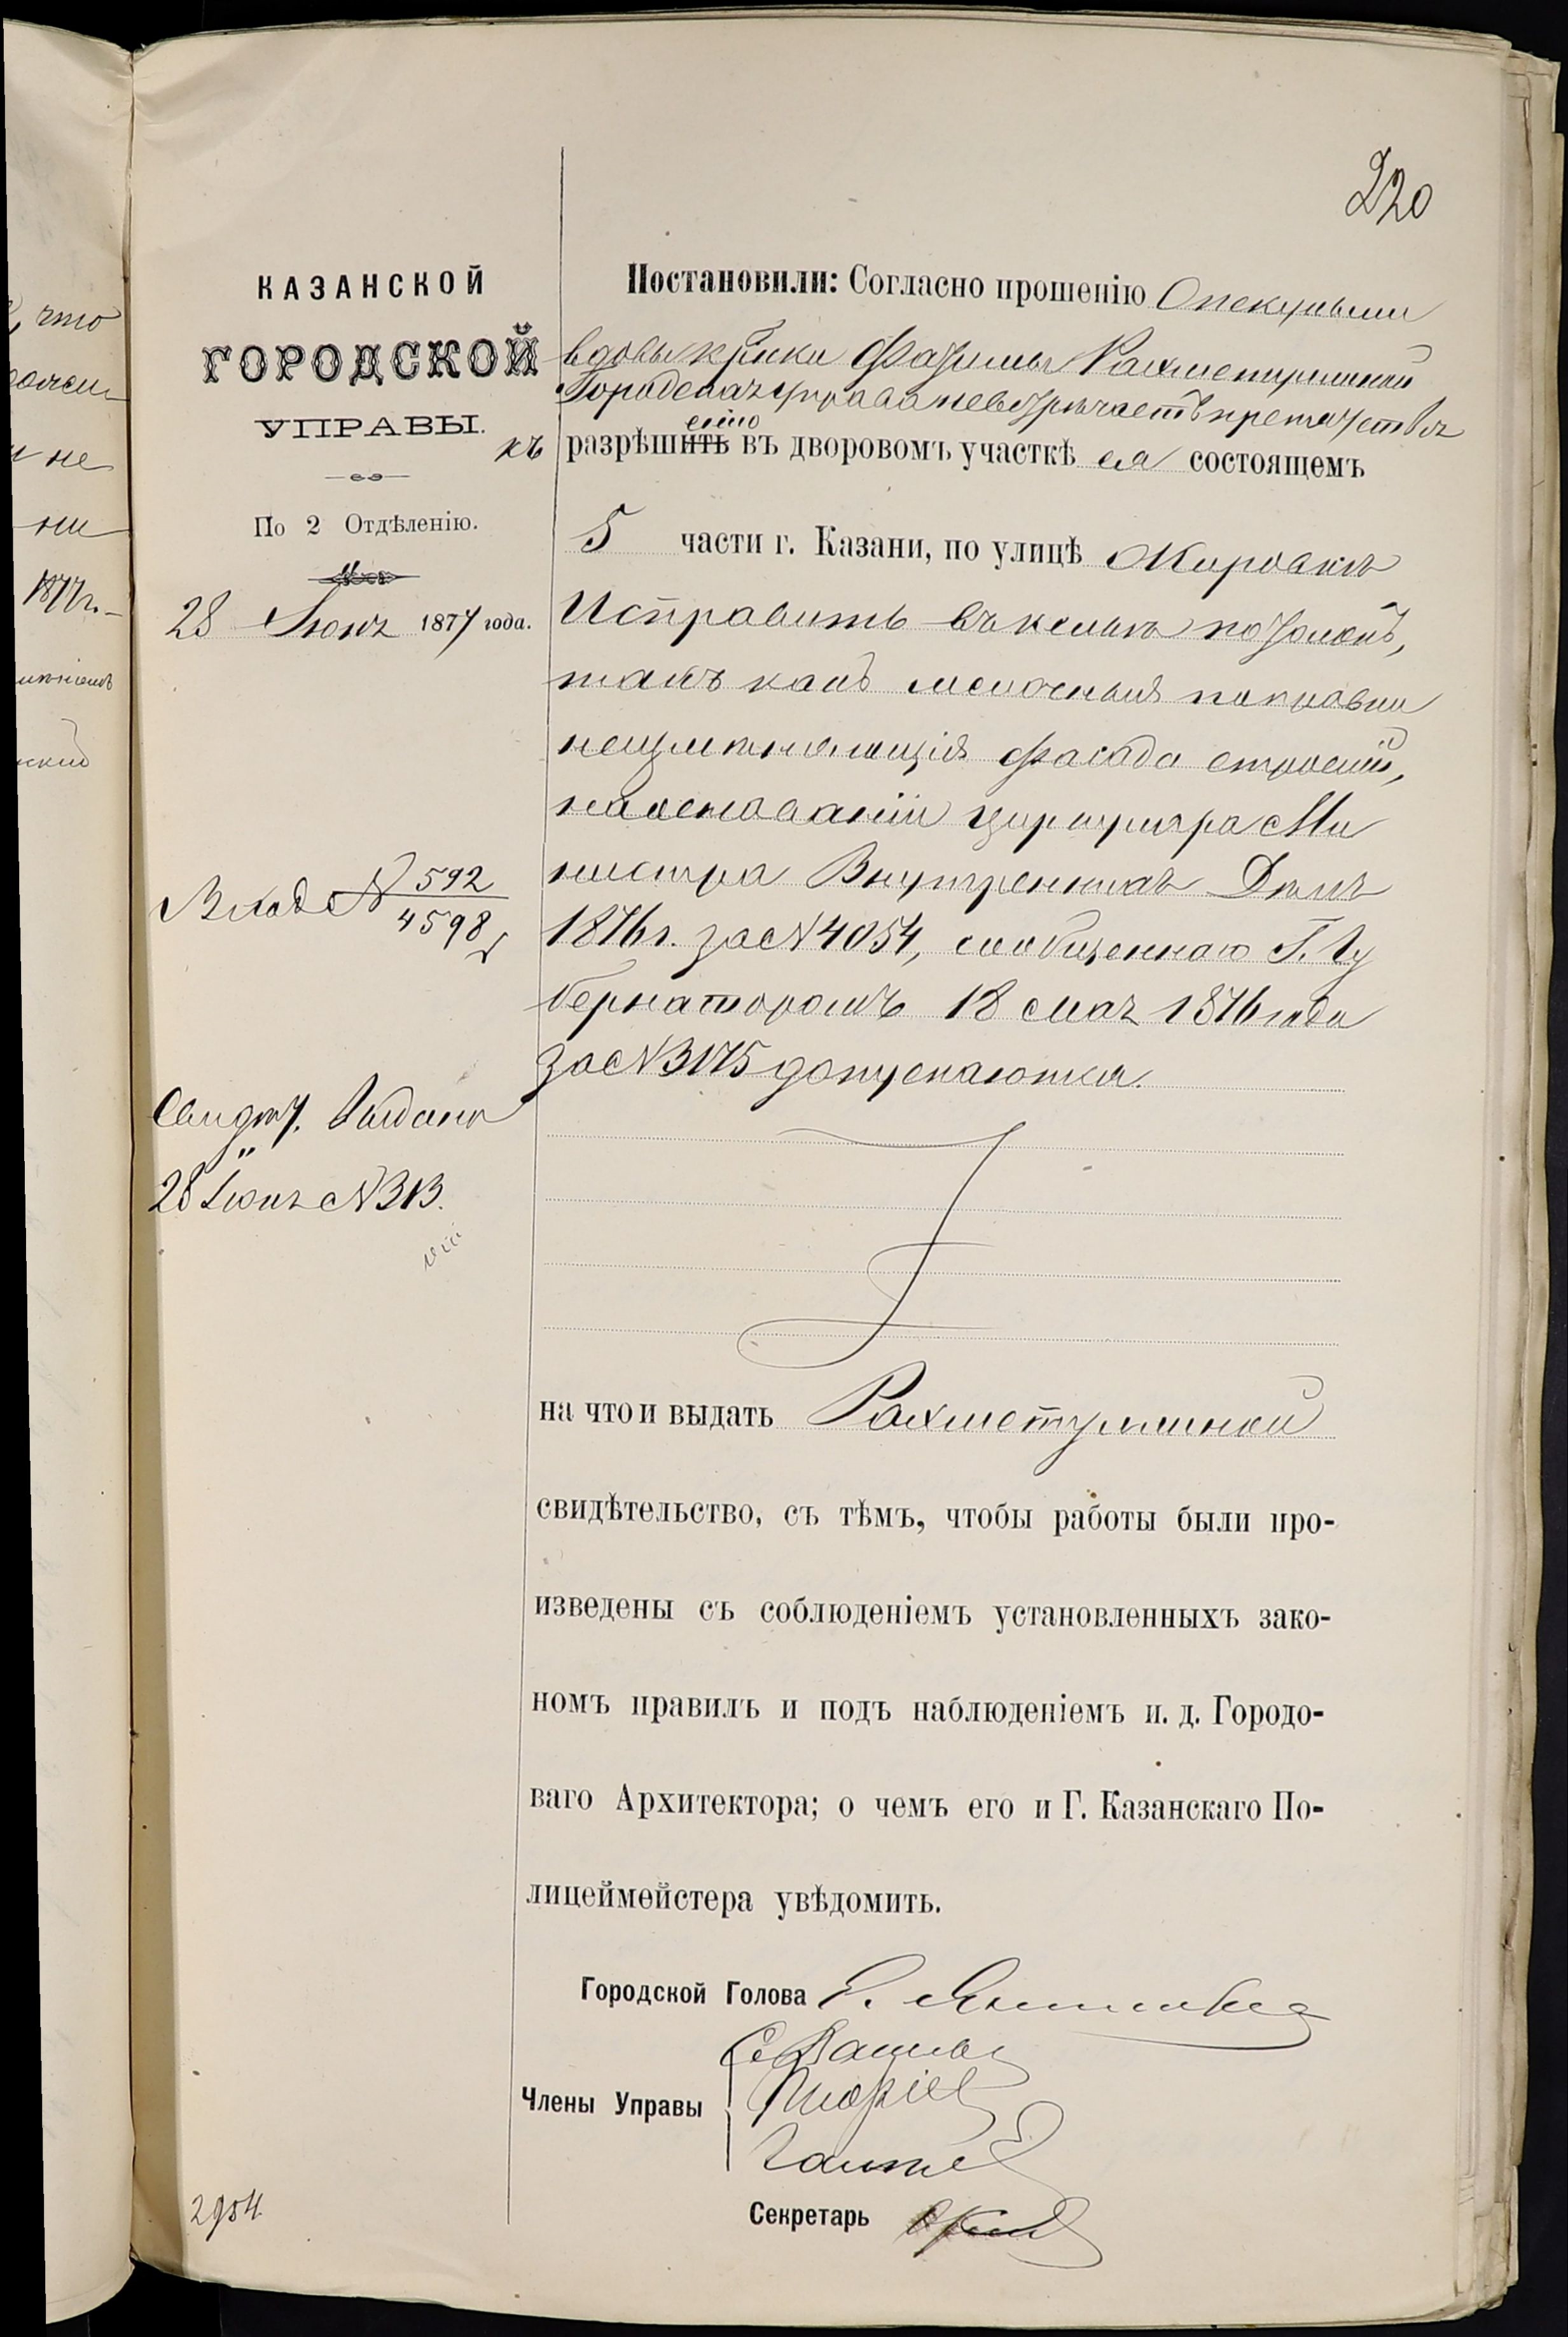 220
КАЗАНСКОЙ
ГОРОДСКОЙ
УПРАВЫ.
По 2 Отдѣленію.
28 Іюня 1877 года.
Вход № 592
4598
Свидѣт. выдано
28 Іюня № 313.
2954
Постановили: Согласно прошенію Опекунши
вдовы Фатимы Рахметуллиной
Городская управа невстрѣчаетъ препятствія
къ разрѣшенію въ дворовомъ участкѣ ея состоящемъ
5 части г. Казани, по улицѣ Жировкѣ
Исправить въ потолокъ,
такъ какъ мелочныя поправки
неизмѣняющія фасада строеній,
на основаніи циркуляра Ми
нистра Внутреннихъ Дѣлъ
1876 г. за № 4054, сообщеннаго Г. Гу
бернаторомъ 18 мая 1876 года
за № 3175 допускаются.
на что и выдать Рахметуллиной
свидѣтельство, съ тѣмъ, чтобы работы были про-
изведены съ соблюденіемъ установленныхъ зако-
номъ правилъ и подъ наблюденіемъ и. д. Городо-
ваго Архитектора; о чемъ его и Г. Казанскаго По-
лицеймейстера увѣдомить.
Городской Голова
Члены Управы
Секретарь
что
и не
ни
1877 г.